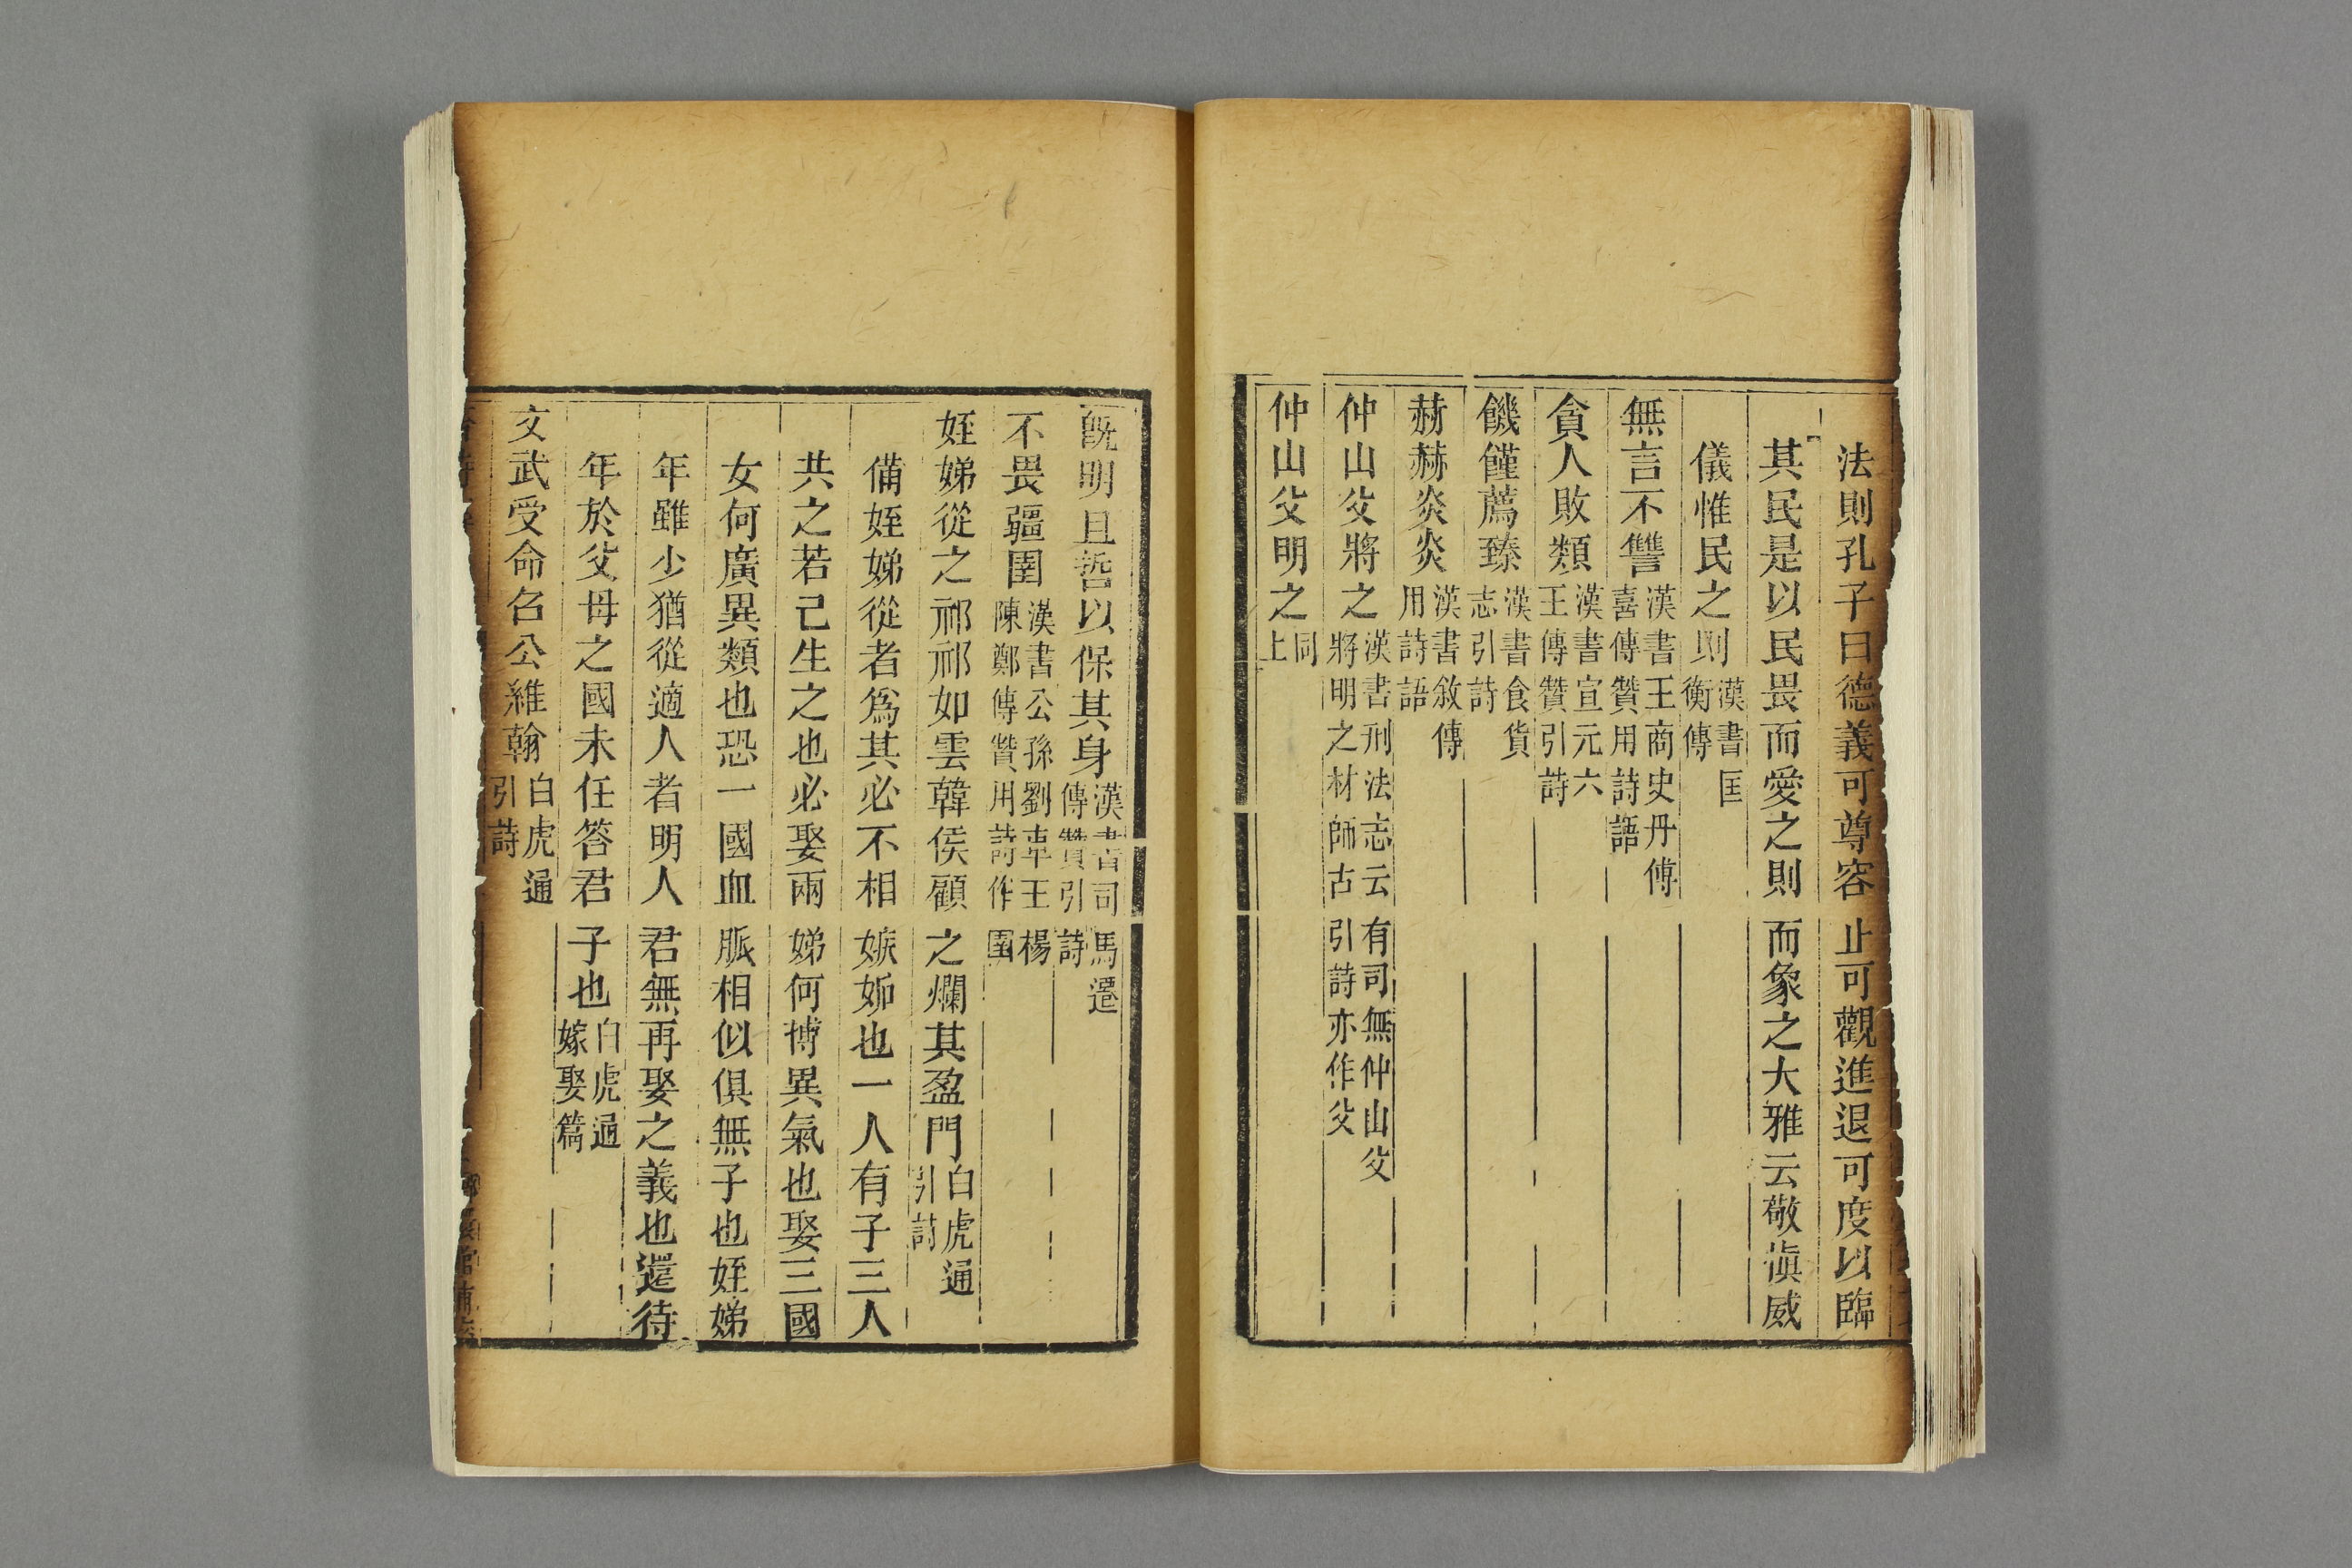 法則孔子曰德義可尊容止可觀進退可度以臨
其民是以民畏而愛之則而象之大雅云敬慎威
儀惟民之則漢書匡衡傳
無言不讐漢書王商史丹傅喜傳贊用詩語
貪人敗類漢書宣元六王傳贊引詩
饑饉薦臻漢書食貨志引詩
赫赫炎炎漢書敘傳用詩語
仲山父將之漢書刑法志云有司無仲山父將明之材師古引詩亦作父
仲山父明之同上
既明且哲以保其身漢書司馬遷傳贊引詩
不畏彊圉漢書公孫劉車王楊陳鄭傳贊用詩作圉
姪娣從之祁祁如雲韓侯顧之爛其盈門白虎通引詩
備姪娣從者爲其必不相嫉妬也一人有子三人
共之若己生之也必娶兩娣何博異氣也娶三國
女何廣異類也恐一國血脈相似俱無子也姪娣
年雖少猶從適人者明人君無再娶之義也還待
年於父母之國未任答君子也白虎通嫁娶篇
文武受命召公維翰白虎通引詩